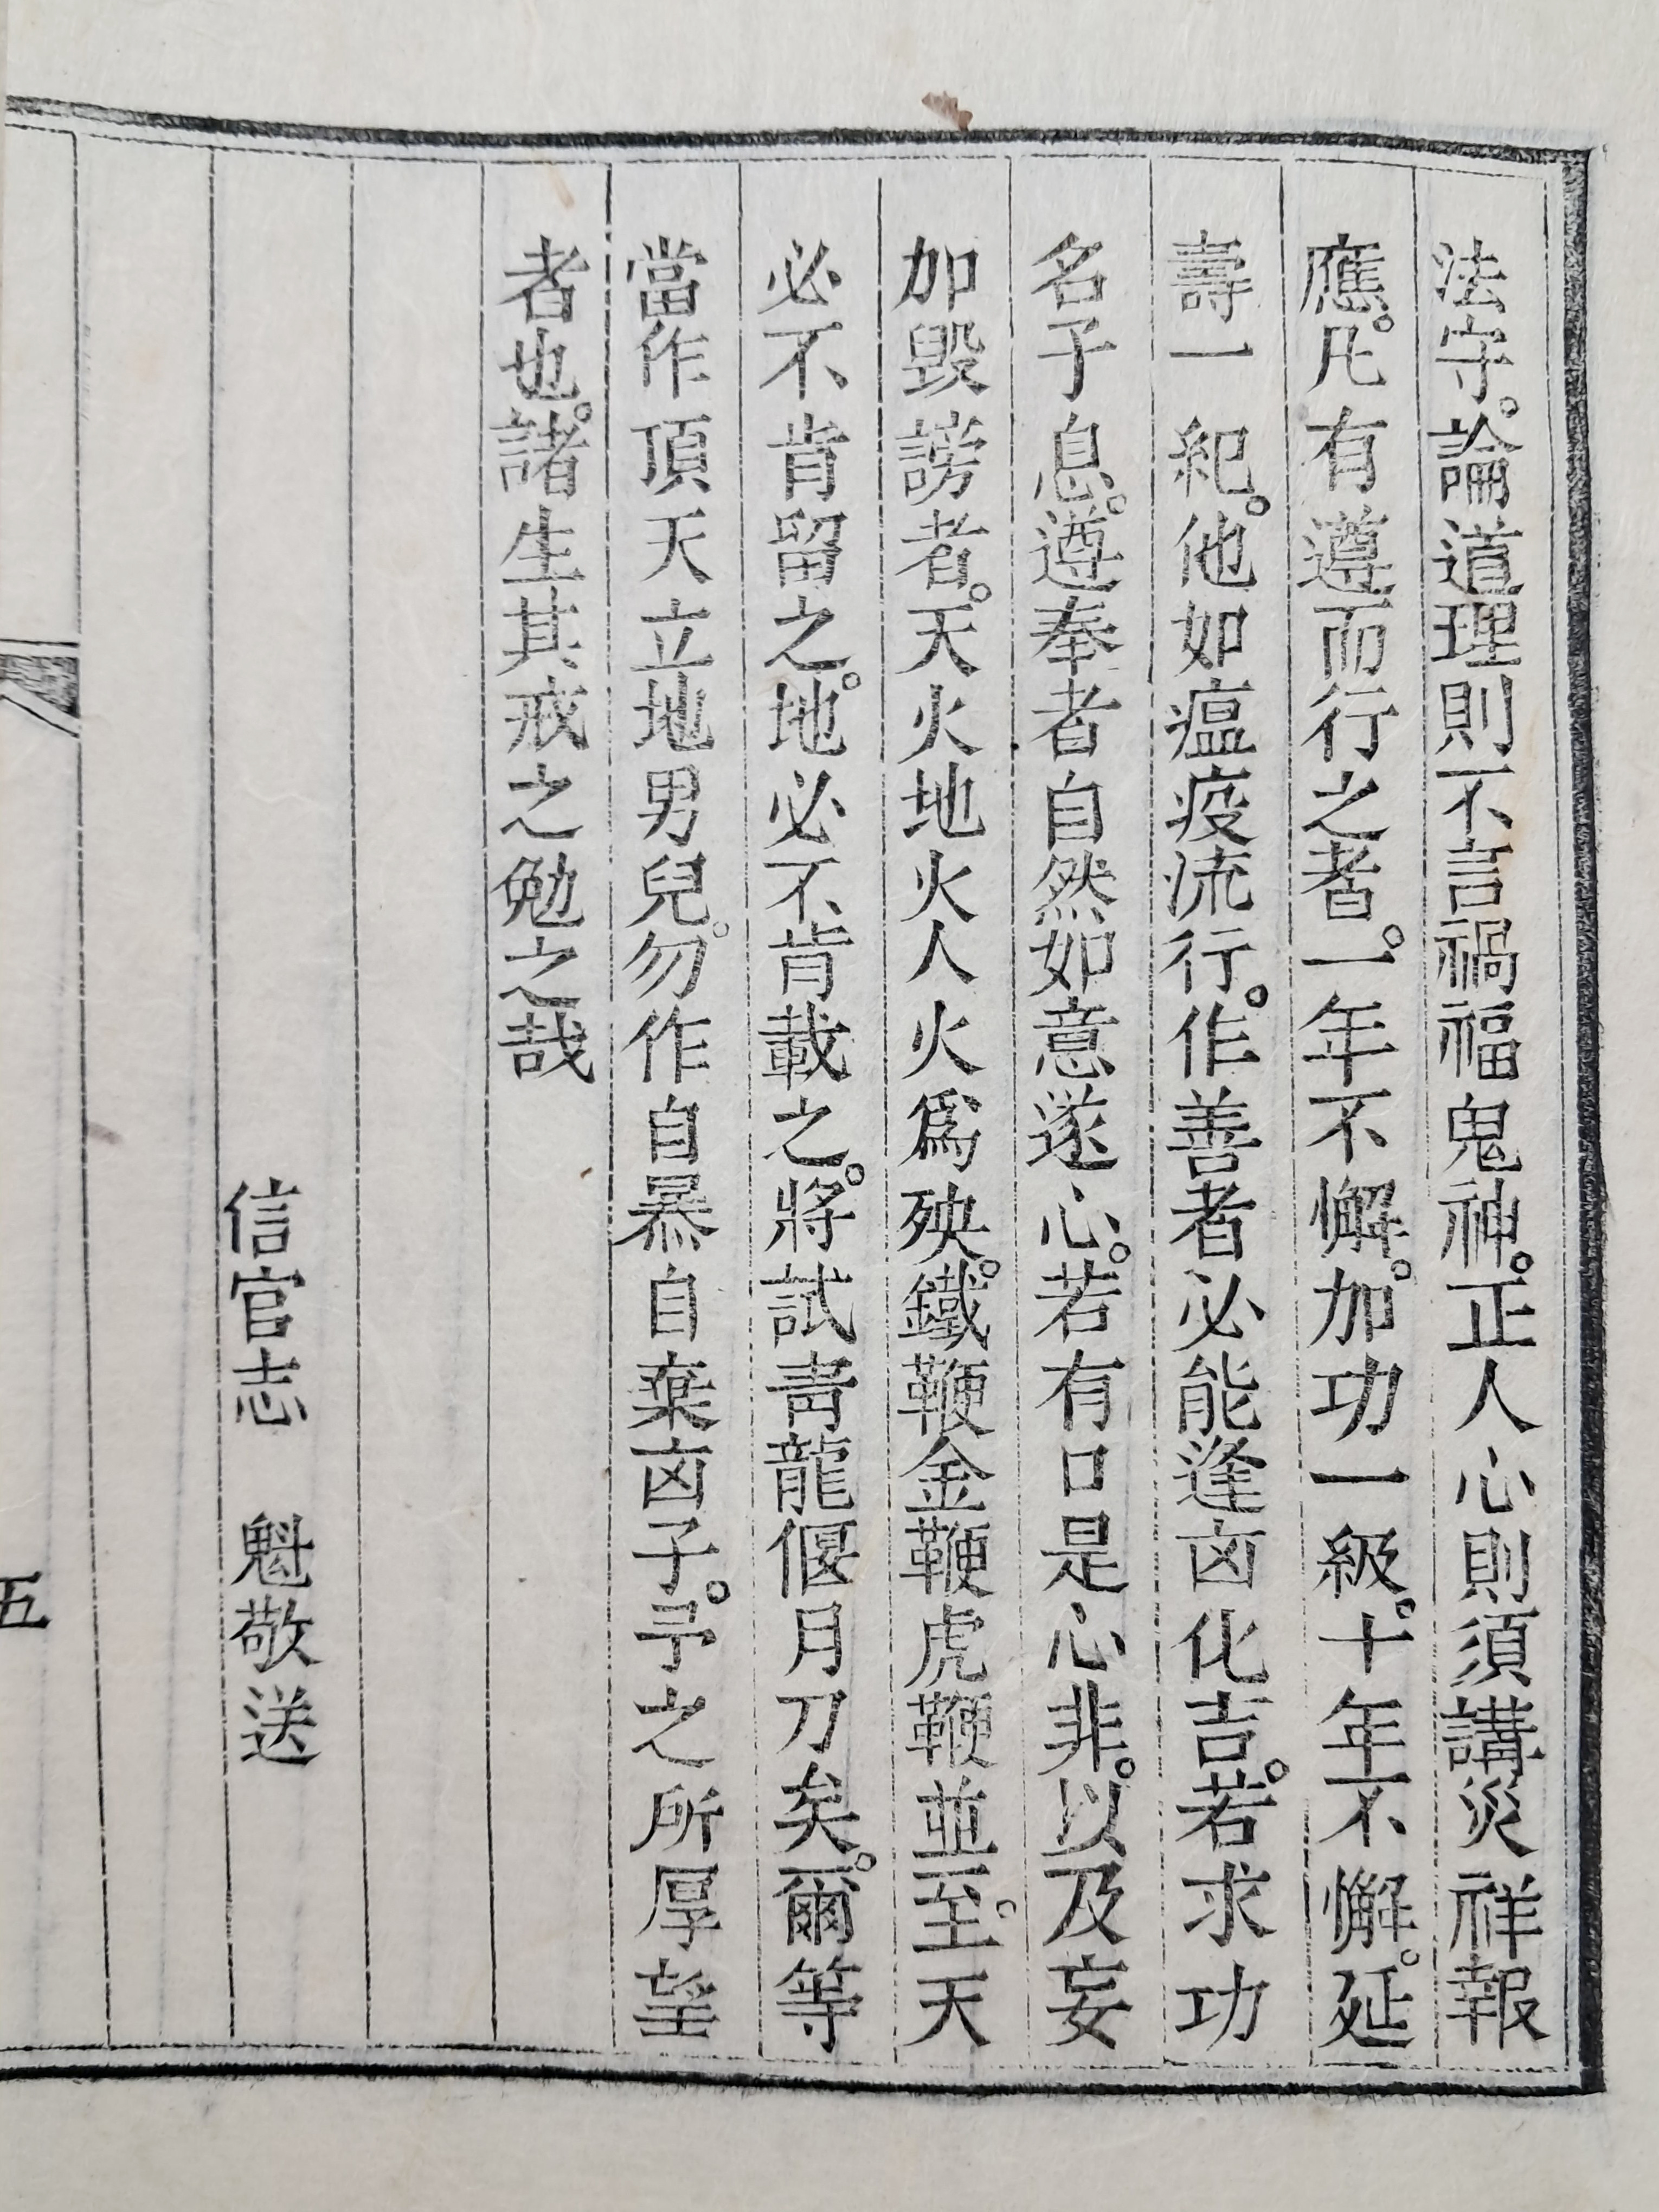 法守。論道理則不言禍福鬼神。正人心則須講災祥報
應。凡有遵而行之者。一年不懈。加功一級。十年不懈。延
壽一紀。他如瘟疫流行。作善者必能逢凶化吉。若求功
名子息。遵奉者自然如意遂心。若有口是心非。以及妄
加毀謗者。天火地火人火爲殃。鐵鞭金鞭虎鞭並至。天
必不肯留之。地必不肯載之。將試青龍偃月刀矣。爾等
當作頂天立地男兒。勿作自暴自棄凶子。予之所厚望
者也。諸生其戒之勉之哉
信官志　魁敬送
五